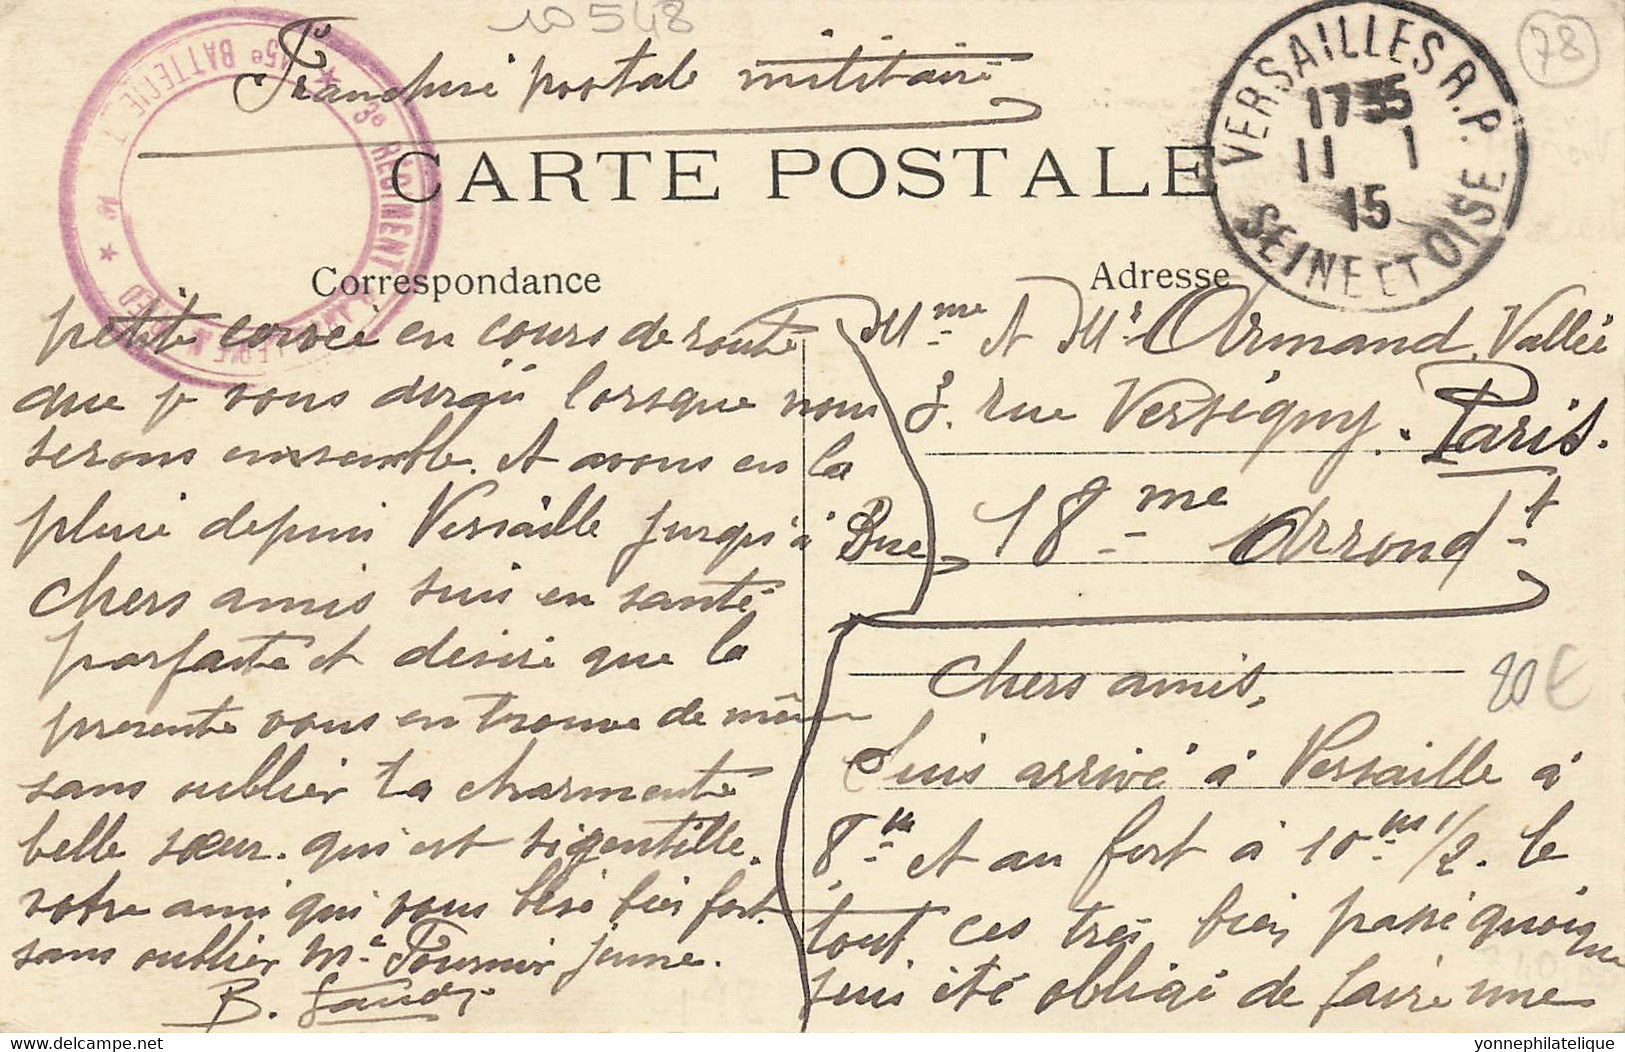 10548
Franchise postale militaire
78
CARTE POSTALE
VERSAILLES R.P.
17 35
11 1
15
SEINE ET OISE
3e REGIMENT
15e BATTERIE
Correspondance
Adresse
Mme et Mr Armand Vallée
8. rue Versigny. Paris.
18me Arrondt
Chers amis,
Suis arrivé à Versaille à
8h et au fort à 10h 1/2. le
tout ces très bien passé quoique
suis été obligé de faire une
petite corvée en cours de route
que je vous dirai lorsque nous
serons ensemble. et avons eu la
pluie depuis Versaille jusqu'à Buc
chers amis suis en santé
parfaite et désire que la
présente vous en trouve de même
sans oublier ta charmente
belle sœur. qui est si gentille.
votre ami qui vous bien fort.
sans oublier Me Fournier jeune.
B.
20€
yonnephilatelique